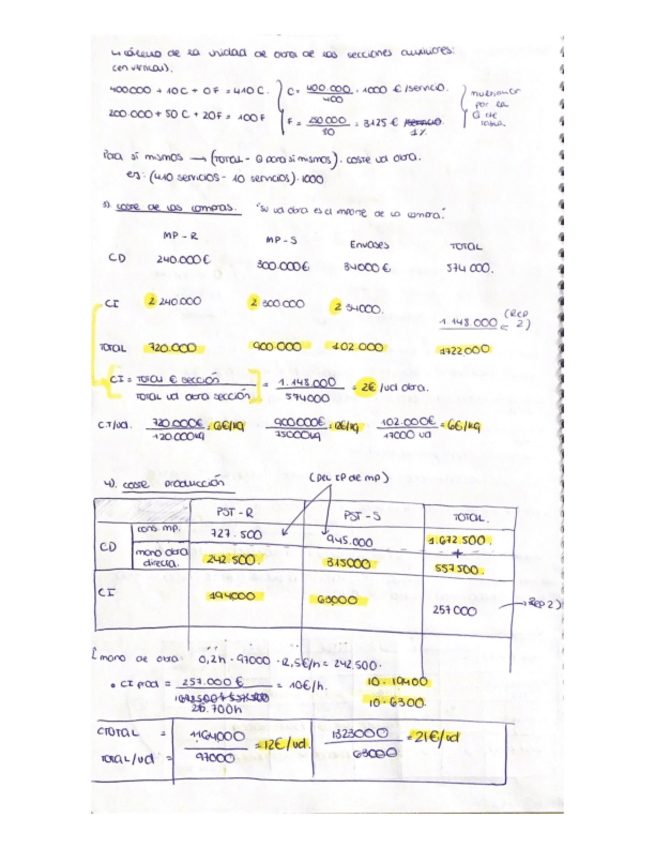 ↳ cálculo de la unidad de obra de las secciones auxiliares:
(en vertical).
400000 + 10C + 0F = 410C.
C = 400.000 / 400 = 1000 € /servicio.
200.000 + 50C + 20F = 100F
F = 250000 / 80 = 3125 €
1%
multiplicar por la Q de tabla.
Para sí mismos → (TOTAL - Q para sí mismos) · coste ud obra.
ej: (410 servicios - 10 servicios) · 1000
3) coste de las compras. "su ud obra es el importe de la compra".
MP-R MP-S Envases TOTAL
CD 240.000€ 300.000€ 34000€ 574000.
CI 2·240.000 2·300000 2·34000. 1.148.000 (REP 2)
TOTAL 720.000 900.000 102.000 1722000
CI = TOTAL € sección / TOTAL ud obra sección = 1.148.000 / 574000 = 2€ /ud obra.
C.T/ud. 720.000€ / 120000kg = 6€/kg 900.000€ / 75000kg = 12€/kg 102.000€ / 17000 ud = 6€/kg
4). coste producción (DEL IP de mp)
PST-R PST-S TOTAL.
CD cons mp. 727.500 945.000 1.672.500.
mano obra directa. 242.500. 315000 557500.
CI 194000 63000 257000 → REP 2)
[mano de obra: 0,2h · 97000 · 12,5€/h = 242.500.
• CI prod = 257.000 € / 25.700h = 10€/h.
10 · 19400
10 · 6300.
CTOTAL = 1164000 1323000
TOTAL/ud = 97000 = 12€/ud. 63000 = 21€/ud